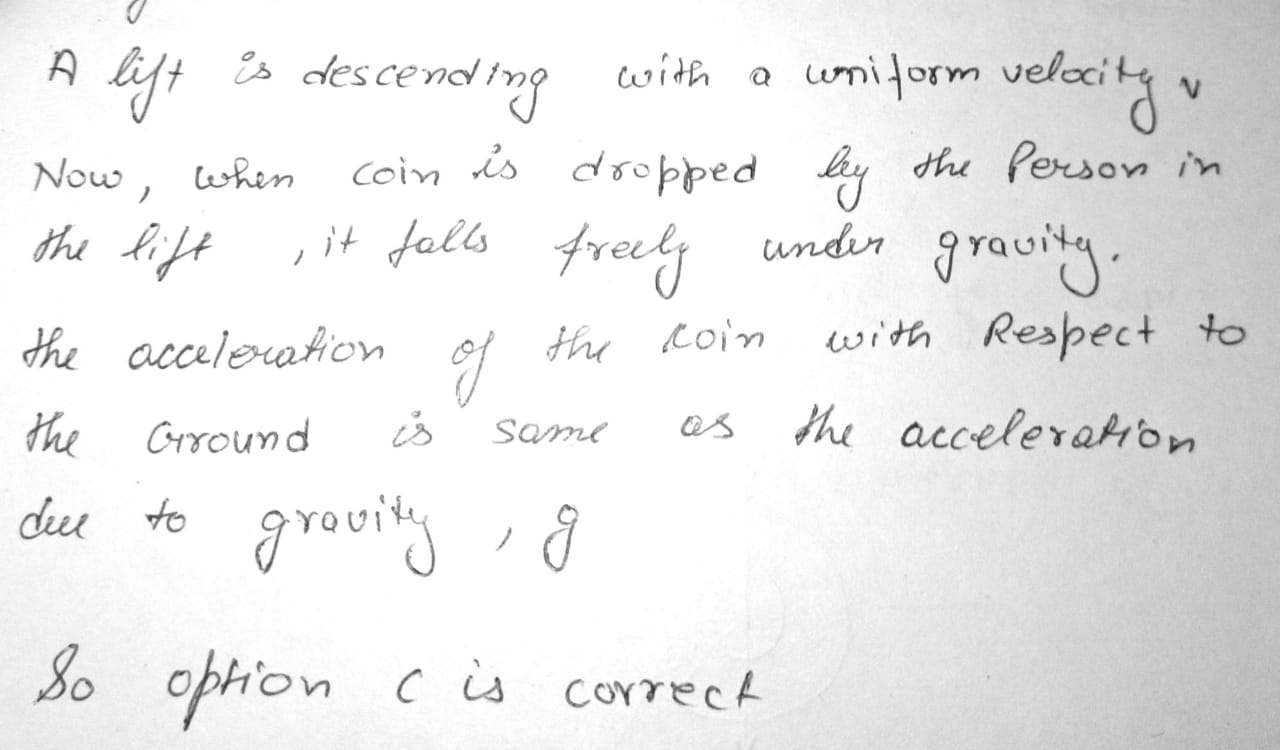 A lift is descending with a uniform velocity v
Now, when coin is dropped by the Person in
the lift , it falls freely under gravity.
the acceleration of the coin with Respect to
the Ground is same as the acceleration
due to gravity , g
So option C is correct